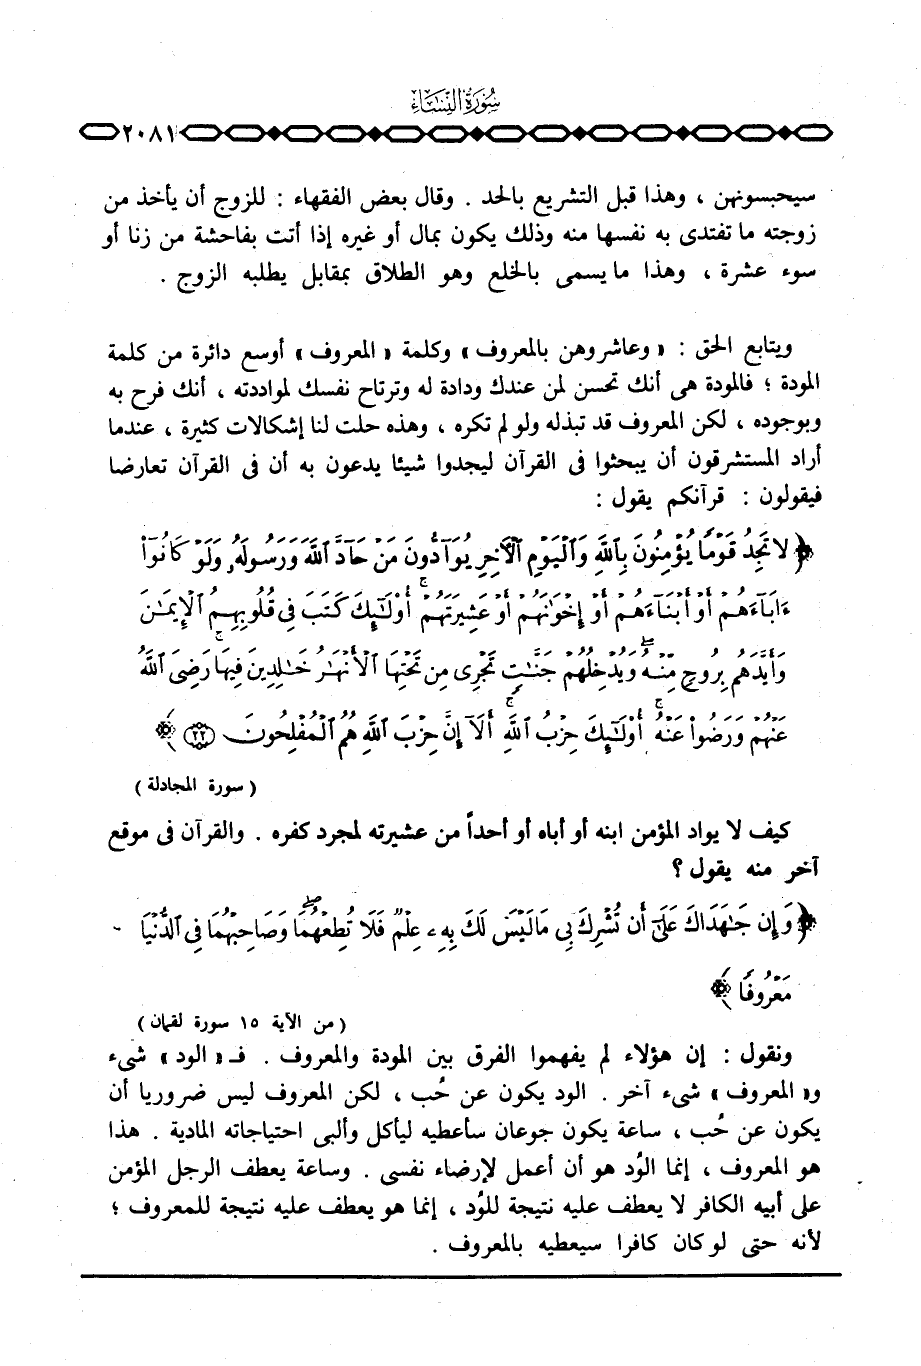 سُورَةُ النِّسَاء
٢٠٨١
سيحبسونهن ، وهذا قبل التشريع بالحد . وقال بعض الفقهاء : للزوج أن يأخذ من
زوجته ما تفتدى به نفسها منه وذلك يكون بمال أو غيره إذا أتت بفاحشة من زنا أو
سوء عشرة ، وهذا ما يسمى بالخلع وهو الطلاق بمقابل يطلبه الزوج .
ويتابع الحق : « وعاشروهن بالمعروف » وكلمة « المعروف » أوسع دائرة من كلمة
المودة ؛ فالمودة هى أنك تحسن لمن عندك ودادة له وترتاح نفسك لمواددته ، أنك فرح به
وبوجوده ، لكن المعروف قد تبذله ولو لم تكره ، وهذه حلت لنا إشكالات كثيرة ، عندما
أراد المستشرقون أن يبحثوا فى القرآن ليجدوا شيئا يدعون به أن فى القرآن تعارضا
فيقولون : قرآنكم يقول :
﴿ لَا تَجِدُ قَوْمًا يُؤْمِنُونَ بِاللَّهِ وَالْيَوْمِ الْآخِرِ يُوَآدُّونَ مَنْ حَآدَّ اللَّهَ وَرَسُولَهُۥ وَلَوْ كَانُوٓا۟
ءَابَآءَهُمْ أَوْ أَبْنَآءَهُمْ أَوْ إِخْوَٰنَهُمْ أَوْ عَشِيرَتَهُمْ ۚ أُو۟لَٰٓئِكَ كَتَبَ فِى قُلُوبِهِمُ الْإِيمَٰنَ
وَأَيَّدَهُم بِرُوحٍ مِّنْهُ ۖ وَيُدْخِلُهُمْ جَنَّٰتٍ تَجْرِى مِن تَحْتِهَا الْأَنْهَٰرُ خَٰلِدِينَ فِيهَا ۚ رَضِىَ اللَّهُ
عَنْهُمْ وَرَضُوا۟ عَنْهُ ۚ أُو۟لَٰٓئِكَ حِزْبُ اللَّهِ ۚ أَلَآ إِنَّ حِزْبَ اللَّهِ هُمُ الْمُفْلِحُونَ ٢٢ ﴾
( سورة المجادلة )
كيف لا يواد المؤمن ابنه أو أباه أو أحداً من عشيرته لمجرد كفره . والقرآن فى موقع
آخر منه يقول ؟
﴿ وَإِن جَٰهَدَاكَ عَلَىٰٓ أَن تُشْرِكَ بِى مَا لَيْسَ لَكَ بِهِۦ عِلْمٌ فَلَا تُطِعْهُمَا ۖ وَصَاحِبْهُمَا فِى الدُّنْيَا
مَعْرُوفًا ﴾
( من الآية ١٥ سورة لقمان )
ونقول : إن هؤلاء لم يفهموا الفرق بين المودة والمعروف . فـ « الود » شىء
و« المعروف » شىء آخر . الود يكون عن حُب ، لكن المعروف ليس ضروريا أن
يكون عن حُب ، ساعة يكون جوعان سأعطيه ليأكل وألبى احتياجاته المادية . هذا
هو المعروف ، إنما الوُد هو أن أعمل لإرضاء نفسى . وساعة يعطف الرجل المؤمن
على أبيه الكافر لا يعطف عليه نتيجة للوُد ، إنما هو يعطف عليه نتيجة للمعروف ؛
لأنه حتى لو كان كافرا سيعطيه بالمعروف .